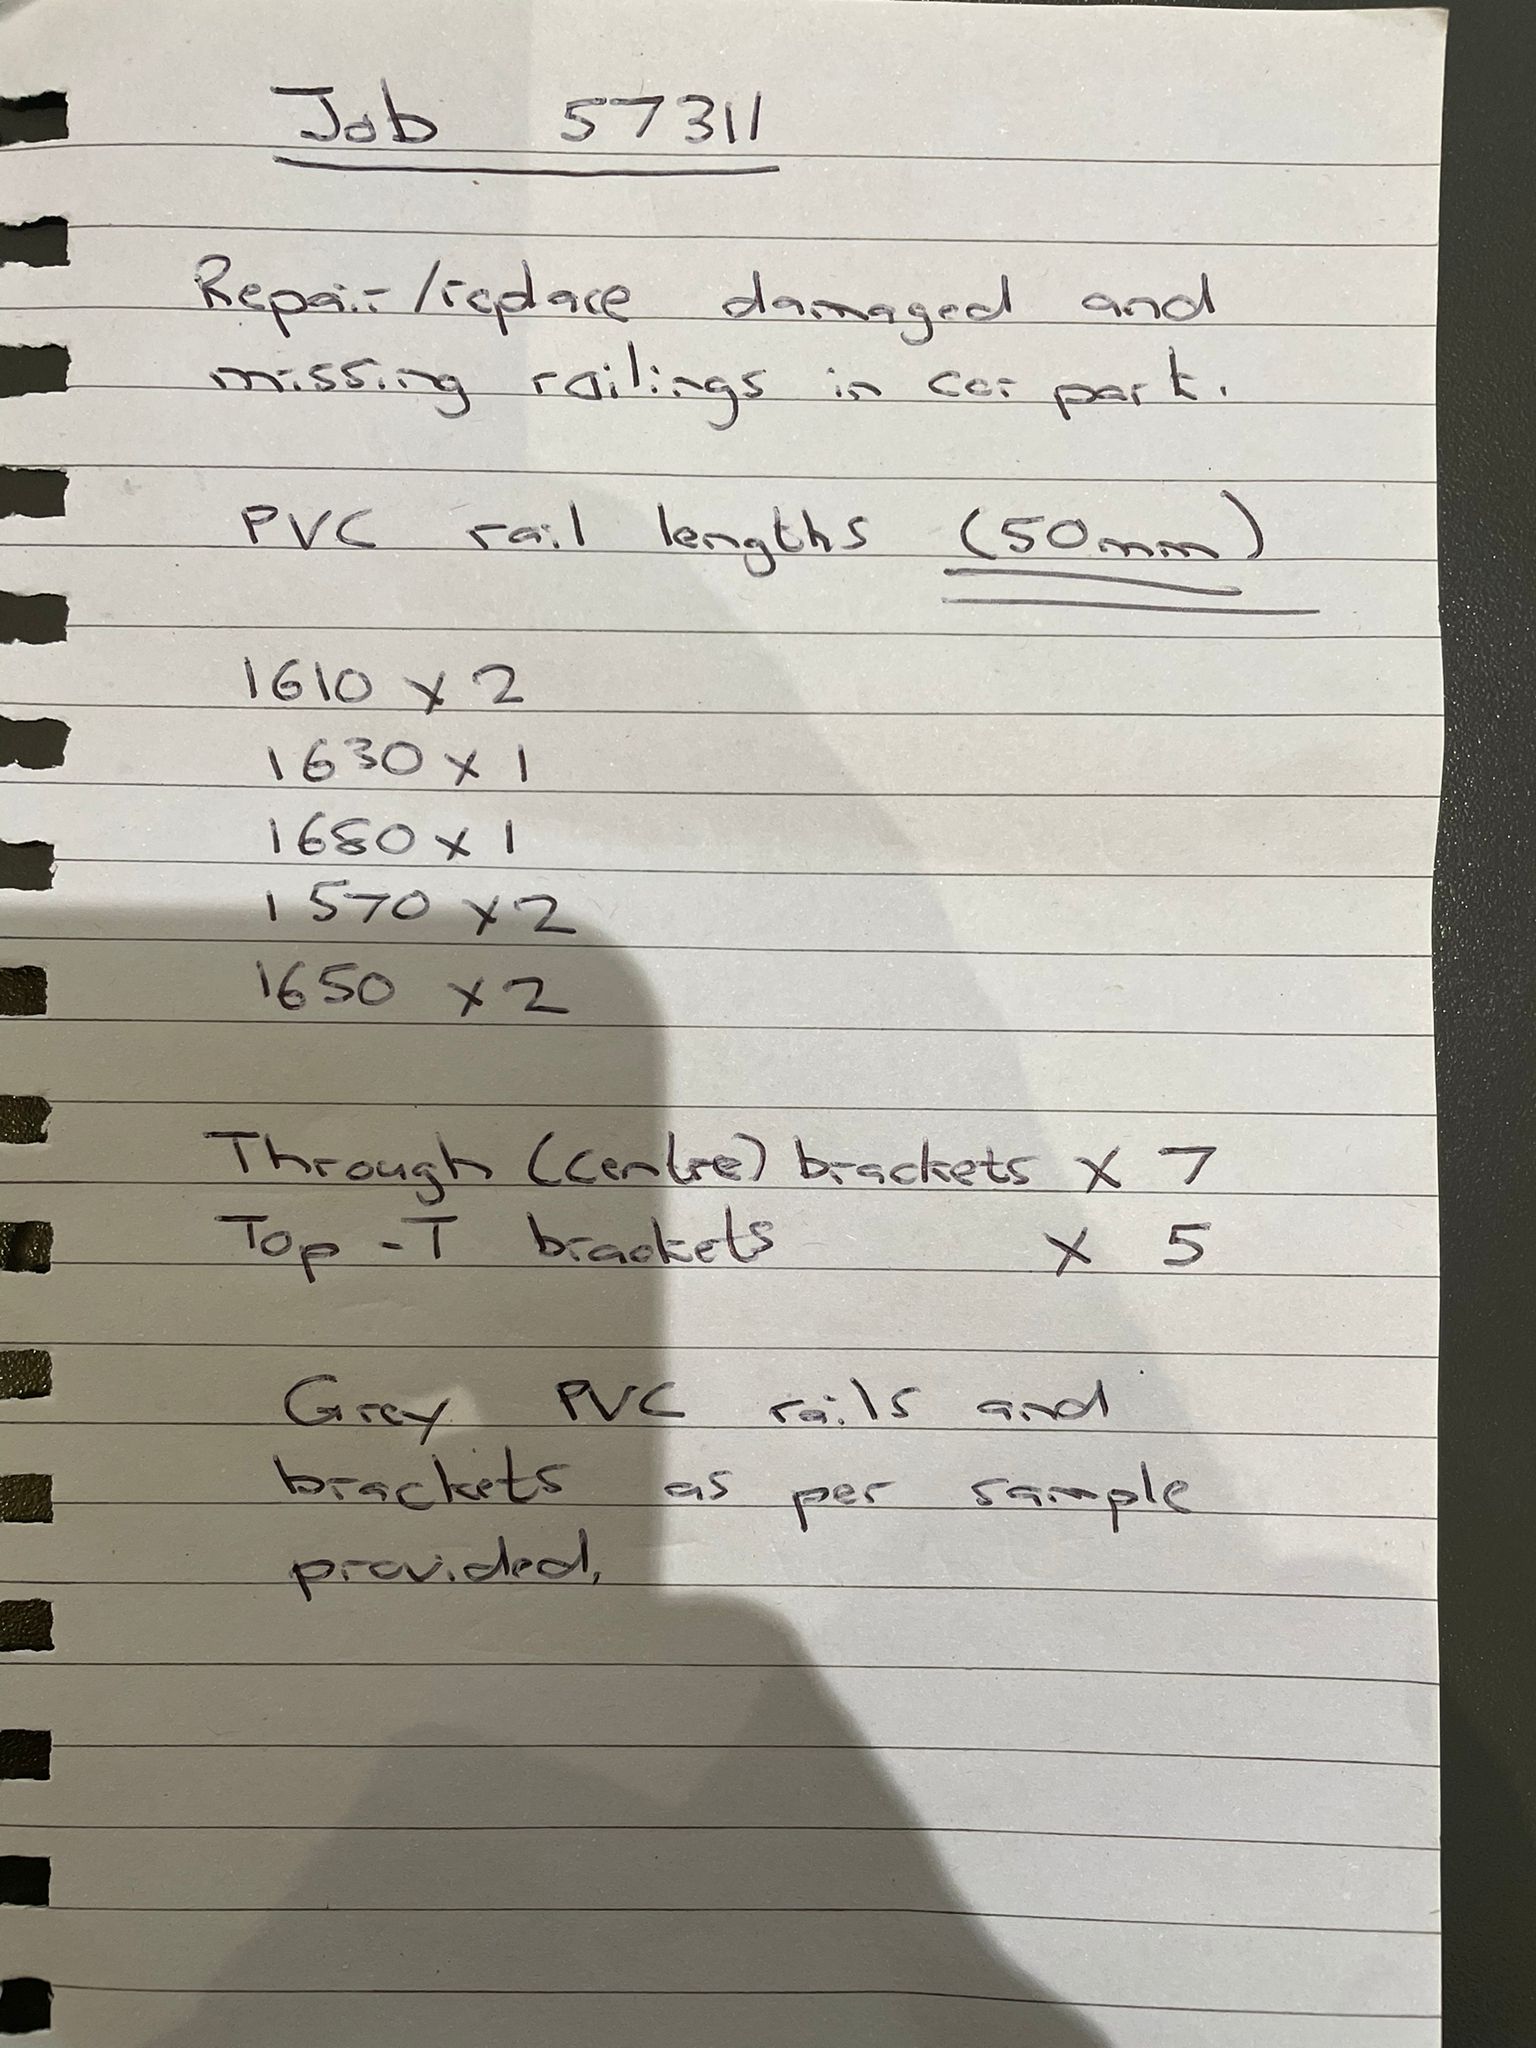 Job 57311
Repair/replace damaged and
missing railings in car park.
PVC rail lengths (50mm)
1610 x 2
1630 x 1
1680 x 1
1570 x 2
1650 x 2
Through (centre) brackets x 7
Top-T brackets x 5
Grey PVC rails and
brackets as per sample
provided.